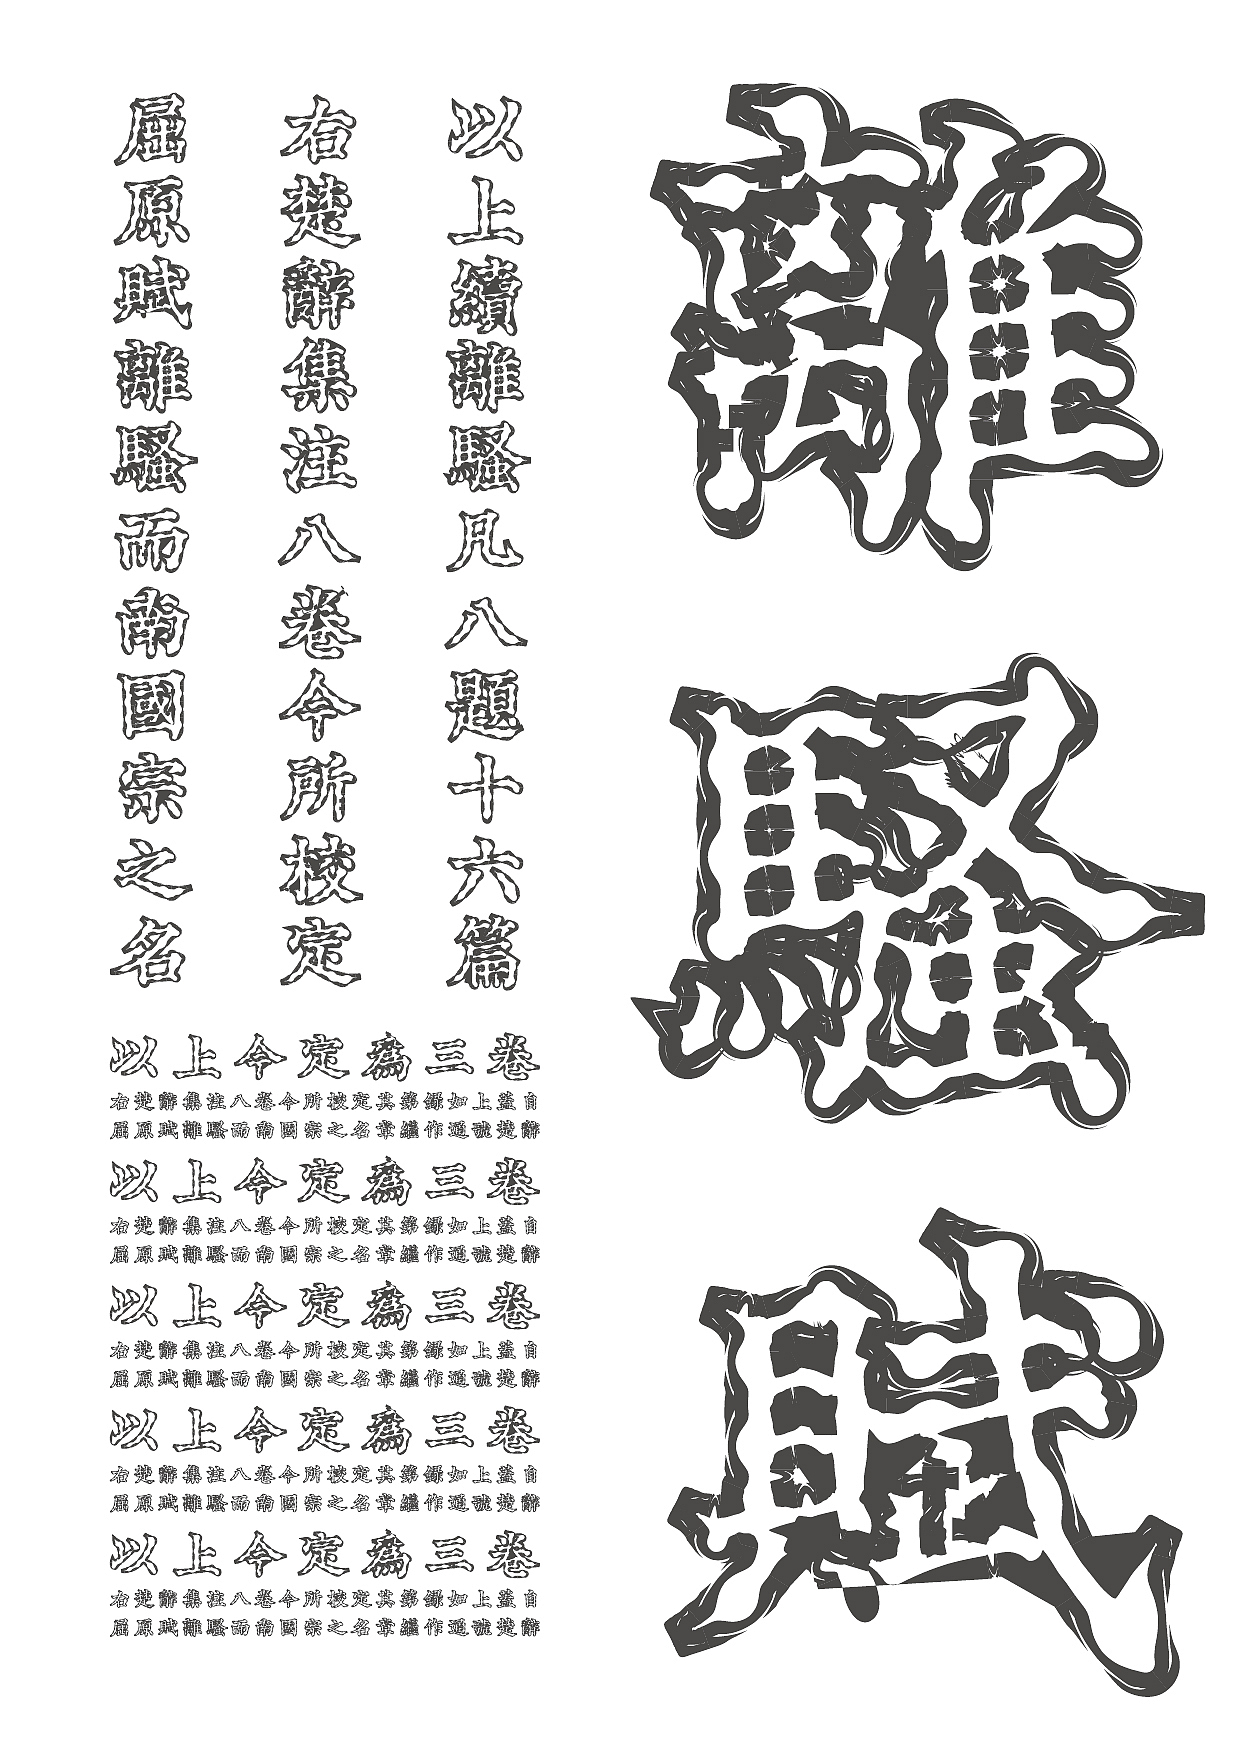 離騷賦
以上續離騷凡八題十六篇
右楚辭集注八卷今所校定
屈原賦離騷而南國宗之名
以上今定爲三卷
右楚辭集注八卷今所校定其第錄如上蓋自
屈原賦離騷而南國宗之名章繼作通號楚辭
以上今定爲三卷
右楚辭集注八卷今所校定其第錄如上蓋自
屈原賦離騷而南國宗之名章繼作通號楚辭
以上今定爲三卷
右楚辭集注八卷今所校定其第錄如上蓋自
屈原賦離騷而南國宗之名章繼作通號楚辭
以上今定爲三卷
右楚辭集注八卷今所校定其第錄如上蓋自
屈原賦離騷而南國宗之名章繼作通號楚辭
以上今定爲三卷
右楚辭集注八卷今所校定其第錄如上蓋自
屈原賦離騷而南國宗之名章繼作通號楚辭